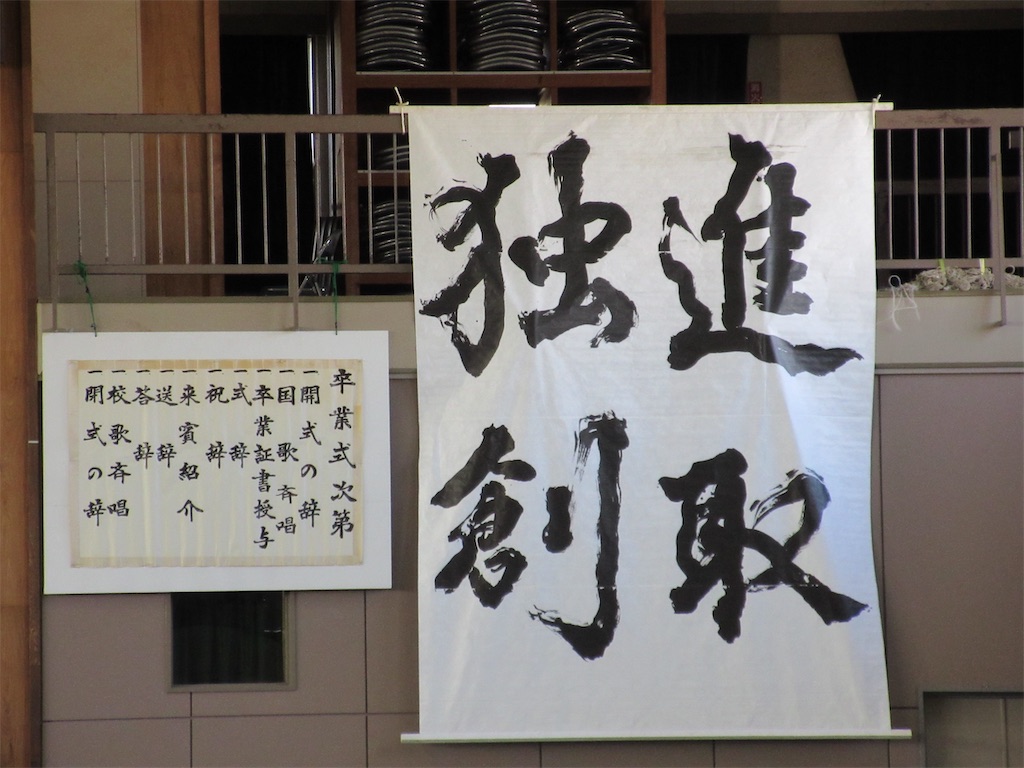 進取
独創
卒業式次第
一開式の辞
一国歌斉唱
一卒業証書授与
一式辞
一祝辞
一来賓紹介
一送辞
一答辞
一校歌斉唱
一開式の辞